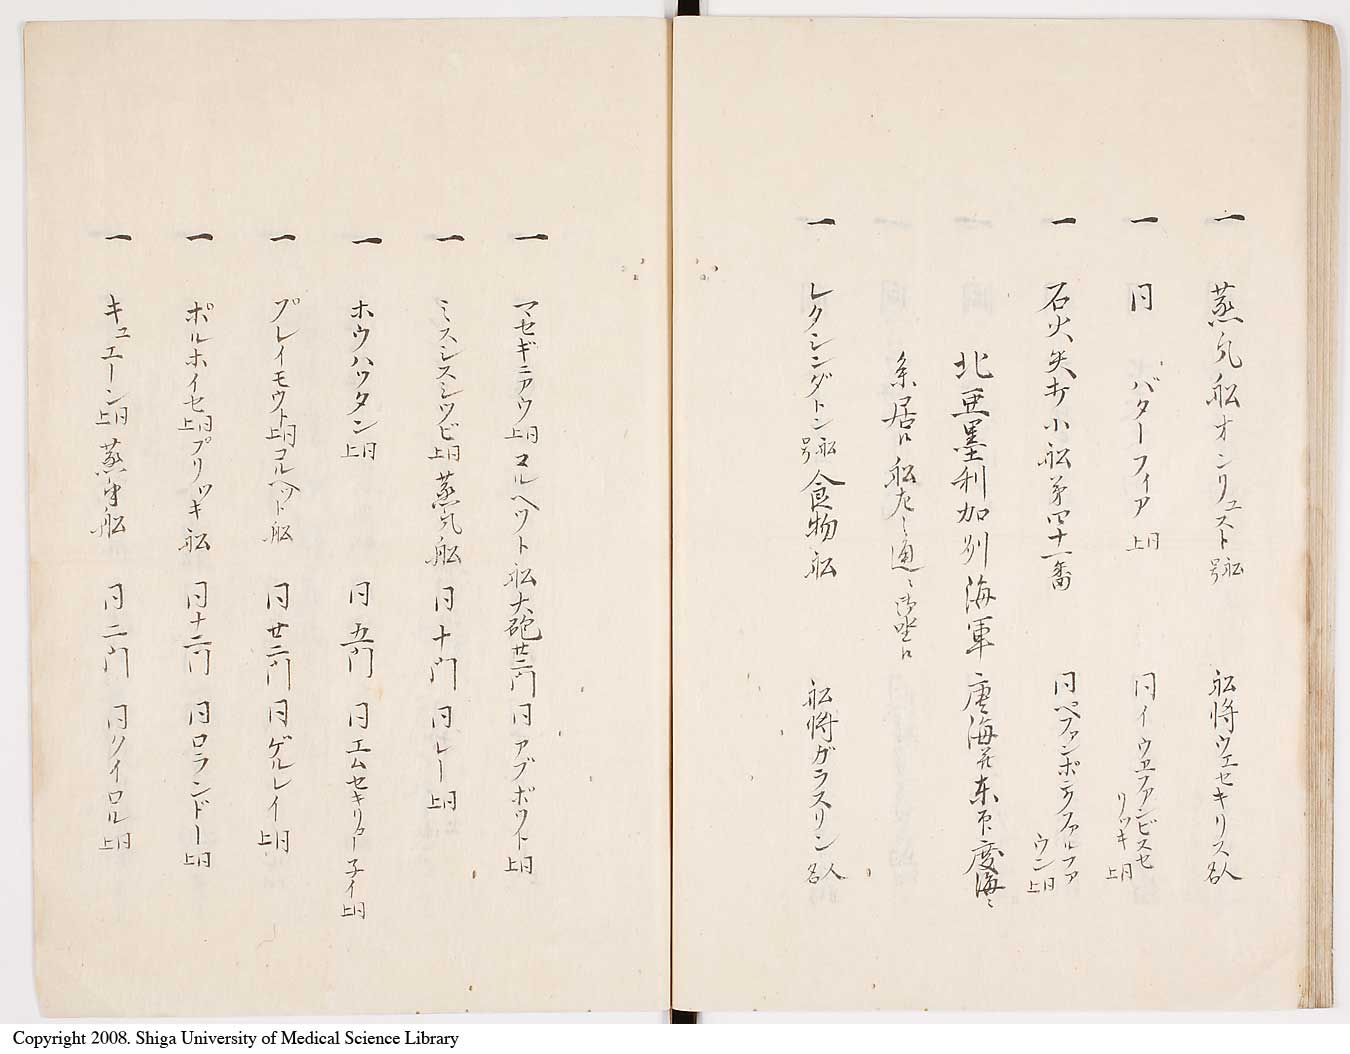 一 蒸気船オンリュスト 船号 船将ウエセキリス 人名
一 同 バターフィア 同上 同イウエファンビスセリッキ 同上
一 石火矢打小船第四十一番 同ペファンボニファルファウン 同上
北亜墨利加州海軍 唐海并東印度海ニ
糸居候船左之通ニ御坐候
一 レクシンダトン 船号 食物船 船将ガラスリン 人名
一 マセギニアウ 同上 コルヘット船 大砲廿二門 同アブボット 同上
一 ミスシスシツビ 同上 蒸気船 同十門 同レー 同上
一 ホウハッタン 同上 同五門 同エムセキリュー子イ 同上
一 プレイモウト 同上 コルヘット船 同廿二門 同ゲルレイ 同上
一 ポルホイセ 同上 プリッキ船 同十二門 同ロランドー 同上
一 キュエーン 同上 蒸気船 同二門 同ハイロル 同上
Copyright 2008. Shiga University of Medical Science Library